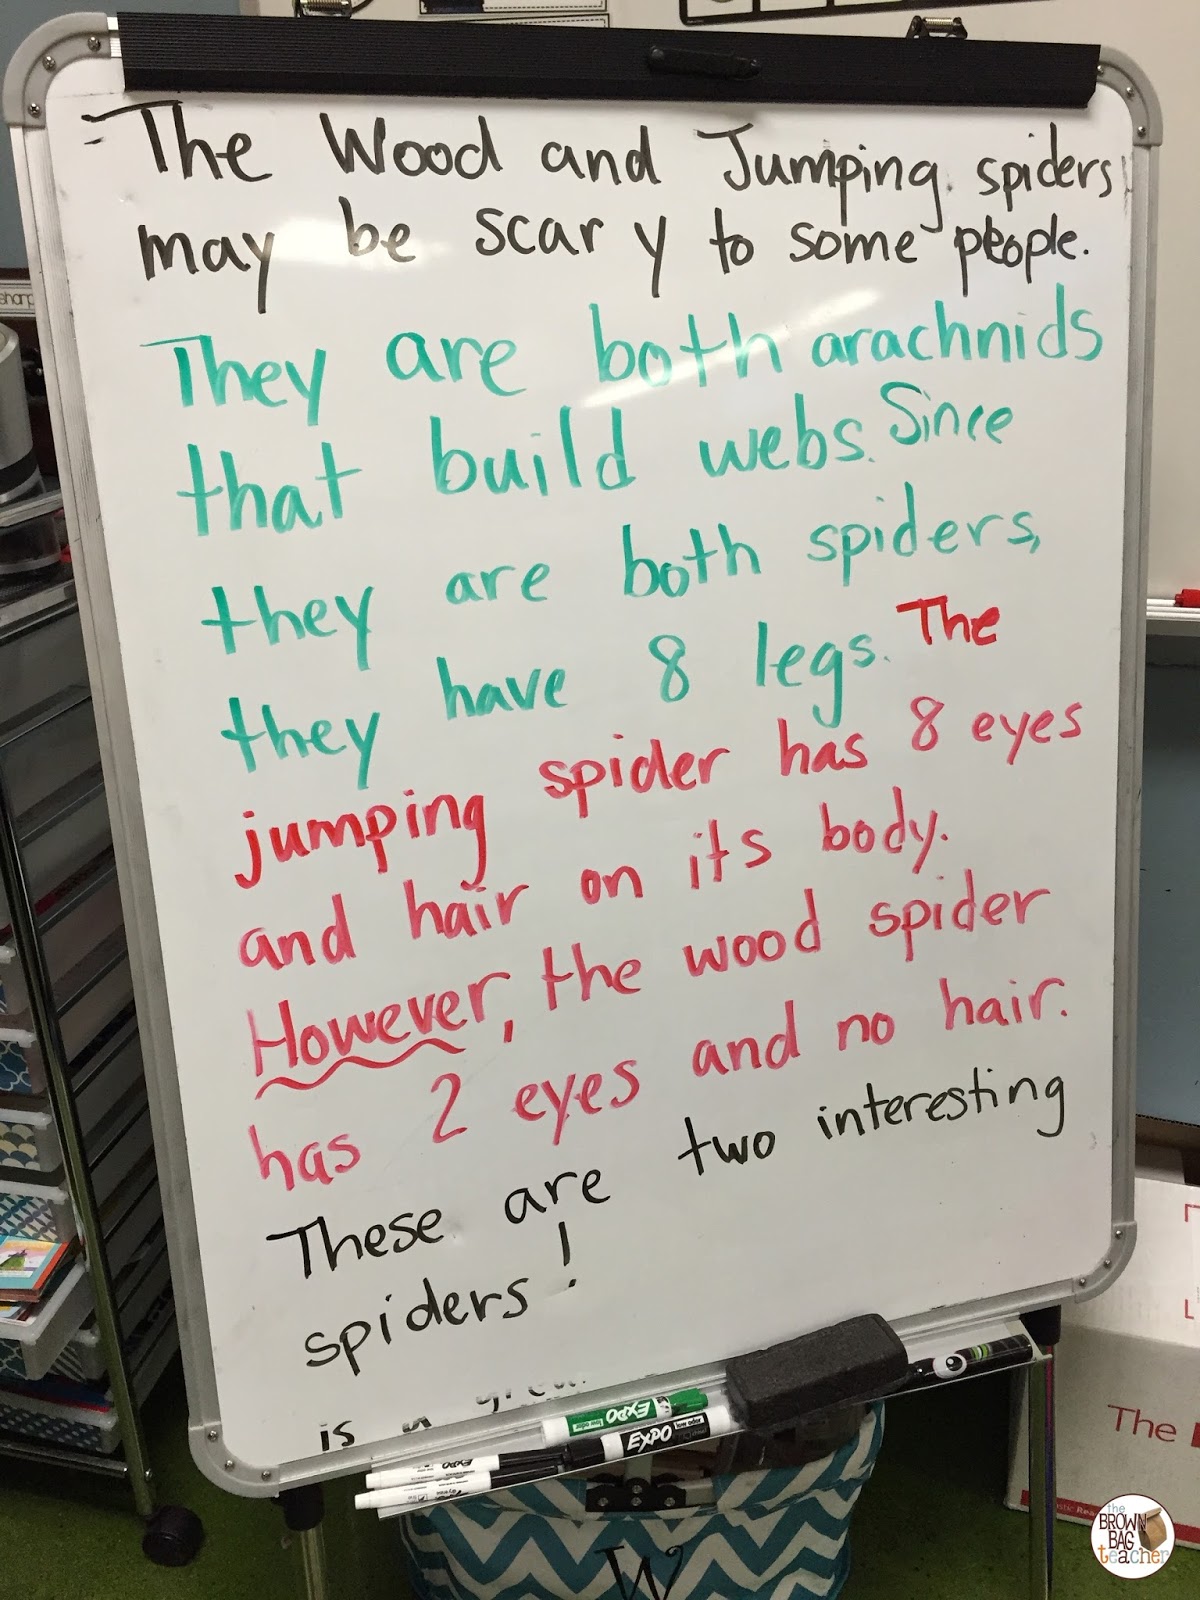 The Wood and Jumping spiders
may be scary to some people.
They are both arachnids
that build webs. Since
they are both spiders,
they have 8 legs. The
jumping spider has 8 eyes
and hair on its body.
However, the wood spider
has 2 eyes and no hair.
These are two interesting
spiders!
is a
EXPO
low odor
EXPO
low odor
EXPO
sharp
The
W
the
BROWN
BAG
teacher